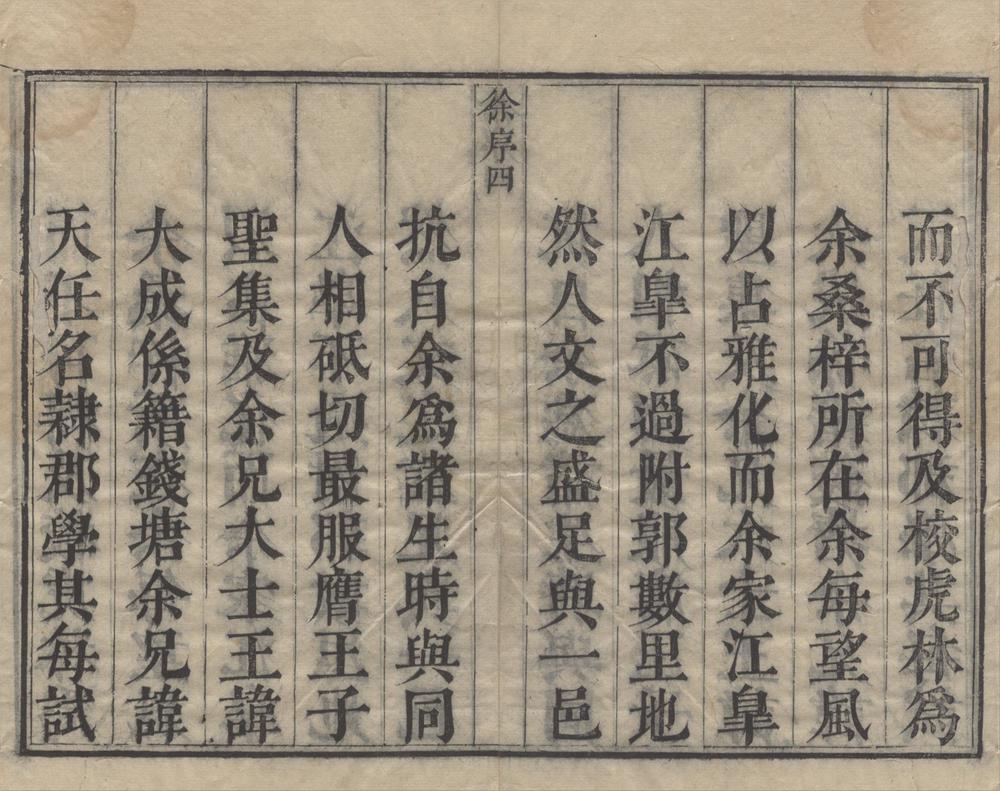 而不可得及校虎林爲
余桑梓所在余每望風
以占雅化而余家江臯
江臯不過附郭數里地
然人文之盛足與一邑
徐序四
抗自余爲諸生時與同
人相砥切最服膺王子
聖集及余兄大士王諱
大成係籍錢塘余兄諱
天任名隷郡學其每試